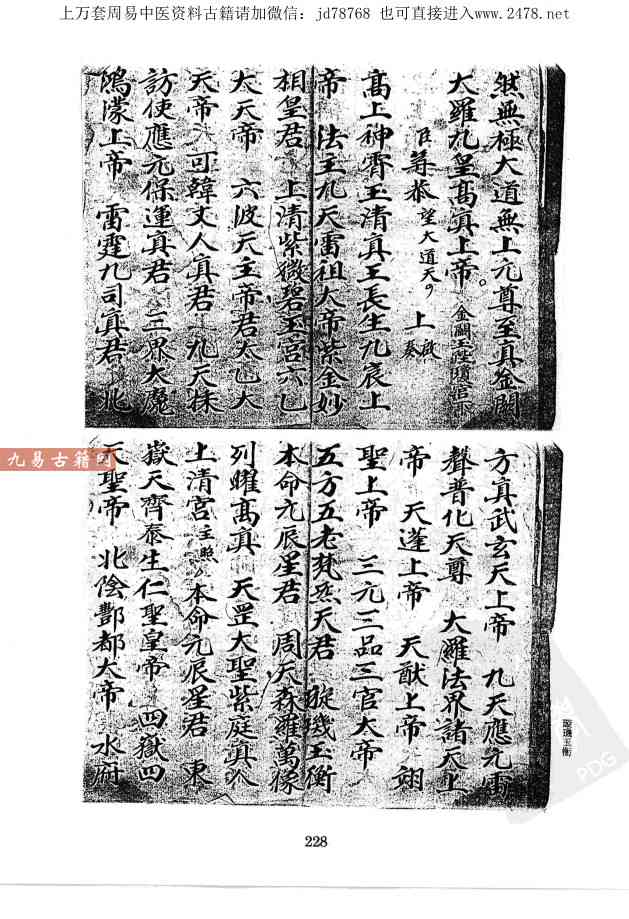 上万套周易中医资料古籍请加微信：jd78768 也可直接进入www.2478.net
然無極大道無上元尊至真金闕
大羅九皇高真上帝。金闕玉陛
臣 尊恭望大道天 上啟奏
高上神霄玉清真王長生九宸上
帝 法王九天雷祖大帝紫金妙
相皇君 上清紫微碧玉宮六乙
大天帝 六波天主帝君太乙大
天帝 可韓丈人真君 九天採
訪使應元保運真君 三界大魔
鴻濛上帝 雷霆九司真君 北
方真武玄天上帝 九天應元雷
聲普化天尊 大羅法界諸天上
帝 天蓬上帝 天猷上帝 翊
聖上帝 三元三品三官大帝
五方五老梵炁天君 璇璣玉衡
本命九辰星君 周天森羅萬像
列曜高真 天罡大聖紫庭真人
上清宮主照 本命元辰星君 東
嶽天齊泰生仁聖皇帝 四嶽四
天聖帝 北陰酆都大帝 水府
璇璣玉衡
九易古籍网
PDG
228